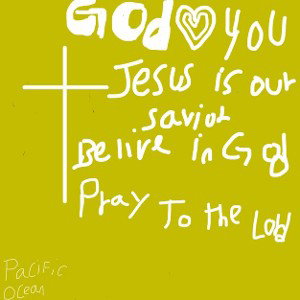 God ♡ you
Jesus is our
savior
Belive in God
Pray To the Lord
Pacific
Ocean